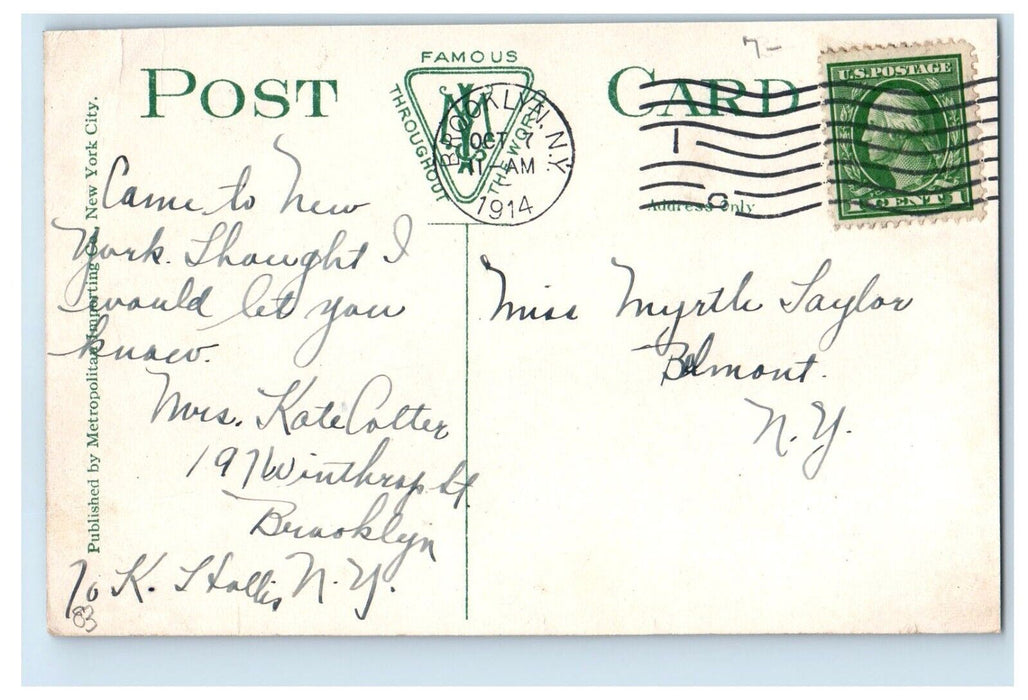 POST CARD
FAMOUS
THROUGHOUT
THE WORLD
BROOKLYN, N.Y.
OCT 7
AM
1914
1
7-
U.S. POSTAGE
1 CENT 1
Address Only
Published by Metropolitan Importing Co. New York City.
Came to New
York. Thought I
would let you
know.
Mrs. Kate Cotter
197 Winthrop St
Brooklyn
N.Y.
K. S Hollis
83
Miss Myrtle Taylor
Belmont.
N.Y.